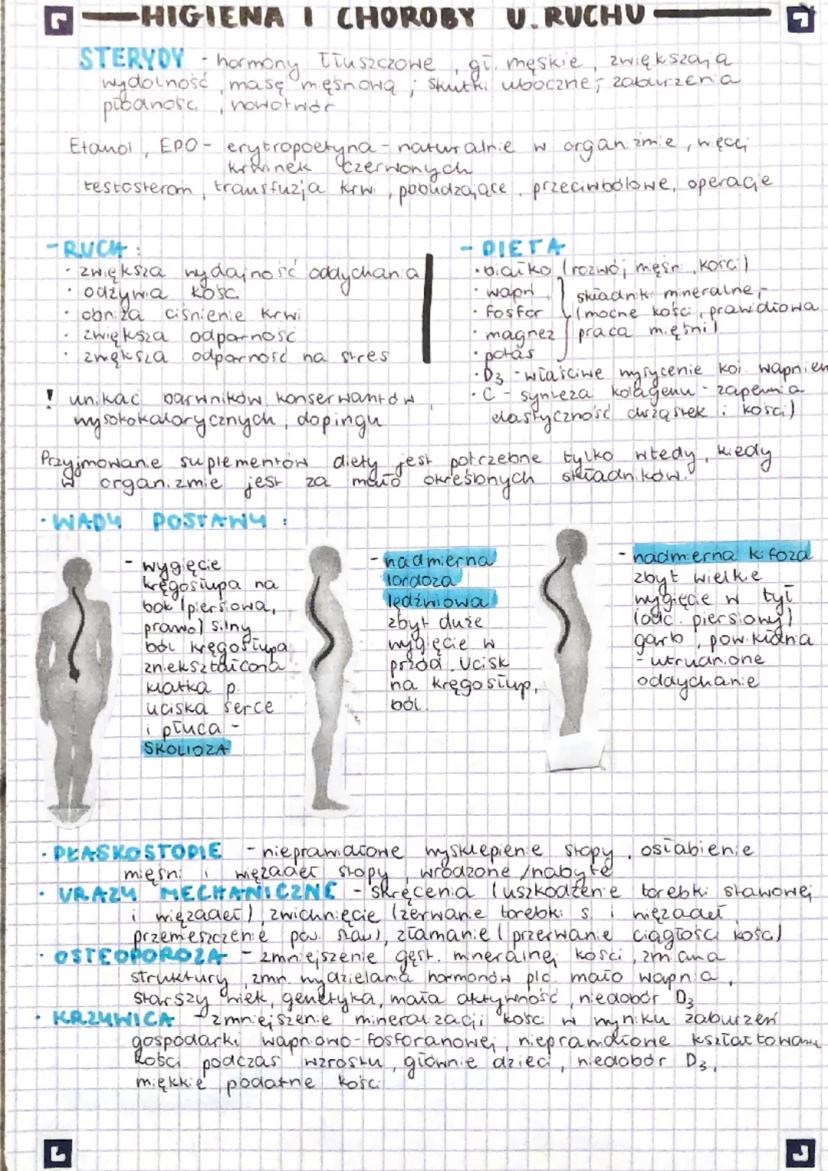 HIGIENA I CHOROBY U. RUCHU
STERYDY - hormony tłuszczowe, gł. męskie, zwiększają
wydolność, masę mięśnową; skutki uboczne; zaburzenia
płodności, nowotwór
Etanol, EPO - erytropoetyna - naturalnie w organizmie, więcej
krwinek czerwonych
testosteron, transfuzja krwi, pobudzające, przeciwbólowe, operacje
- RUCH:
· zwiększa wydajność oddychania
· odżywia kości
· obniża ciśnienie krwi
· zwiększa odporność
· zwiększa odporność na stres
! unikać barwników konserwantów,
wysokokalorycznych, dopingu
- DIETA
· białko (rozwój mięśn, kości)
· wapń
· fosfor
· magnez
· potas
składniki mineralne,-
(mocne kości, prawidłowa
praca mięśni)
· D3 - właściwe wysycenie koi wapniem
· C - synteza kolagenu - zapewnia
elastyczność chrząstek i kości)
Przyjmowanie suplementów diety jest potrzebne tylko wtedy, kiedy
w organizmie jest za mało określonych składników.
· WADY POSTAWY:
- wygięcie
kręgosłupa na
bok (piersiowa,
prawo) silny
ból kręgosłupa
zniekształcona
klatka p.
uciska serce
i płuca -
SKOLIOZA
- nadmierna
lordoza
lędźwiowa
zbyt duże
wygięcie w
przód. Ucisk
na kręgosłup,
ból.
- nadmierna kifoza
zbyt wielkie
wygięcie w tył
(odc. piersiowy)
garb, pow. kłania
- utrudnione
oddychanie
· PŁASKOSTOPIE - nieprawidłowe wysklepienie stopy, osłabienie
mięśni i więzadeł stopy, wrodzone/nabyte
· URAZY MECHANICZNE - skręcenia (uszkodzenie torebki stawowej
i więzadeł), zwichnięcie (zerwanie torebki s. i więzadeł,
przemieszczenie pow. staw), złamanie (przerwanie ciągłości kości)
· OSTEOPOROZA - zmniejszenie gęst. mineralnej kości, zmiana
struktury, zmn. wydzielania hormonów płc. mało wapnia,
starszy wiek, genetyka, mała aktywność, niedobór D3
· KRZYWICA - zmniejszenie mineralizacji kości w wyniku zaburzeń
gospodarki wapniowo-fosforanowej, nieprawidłowe kształtowani
kości podczas wzrostu, głównie dzieci, niedobór D3,
miękkie, podatne kości